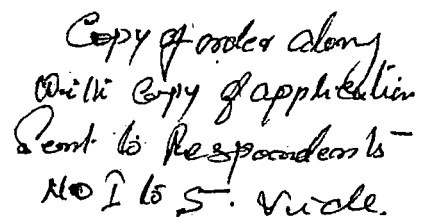 Copy of order along
with copy of application
Sent to Respondents
No I to 5. vide.